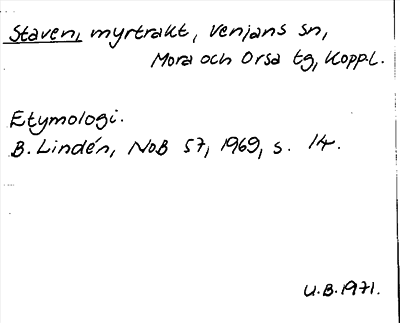 Staven, myrtrakt, Venjans sn,
Mora och Orsa tg, Kopp.l.
Etymologi.
B. Lindén, NoB 57, 1969, s. 14.
U.B. 1971.